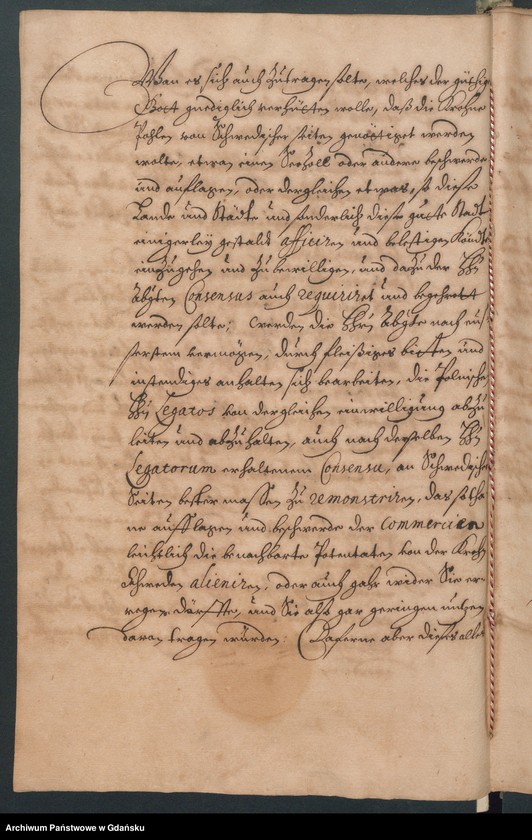 Wan es sich auch zutragen solte, welches der gütige
Gott gnediglich verhüten wolle, daß die Krohne
Pohlen von Schwedischer seiten genötiget werden
wolte, etwan einen Seezoll oder andere beschwerde
und auflagen, oder dergleichen etwas, so diese
Lande und Städte und sonderlich diese gute Stadt
einigerley gestaldt afficiren und belestigen köndte
einzugehen und zu bewilligen, und dazu der HHn
Abgten Consensus auch requiriret und begehret
werden solte; werden die HHrn Abgte nach eüs-
serstem vermögen, durch fleißiges bitten und
instendiges anhalten sich bearbeiten, die Polnische
HHn Legatos von dergleichen einwilligung abzu
leiten und abzuhalten, auch nach derselben HHn
Legatorum erhaltenem Consensu, an Schwedischer
Seiten bester massen zu remonstriren, das sotha
ne aufflagen und beschwerde der Commercien
leichtlich die benachbarte Potentaten von der Krohn
Schweden alieniren, oder auch gahr wider Sie er-
regen dörffte, und Sie also gar geringen nutzen
davon tragen würden: Daferne aber dieses alles
Archiwum Państwowe w Gdańsku